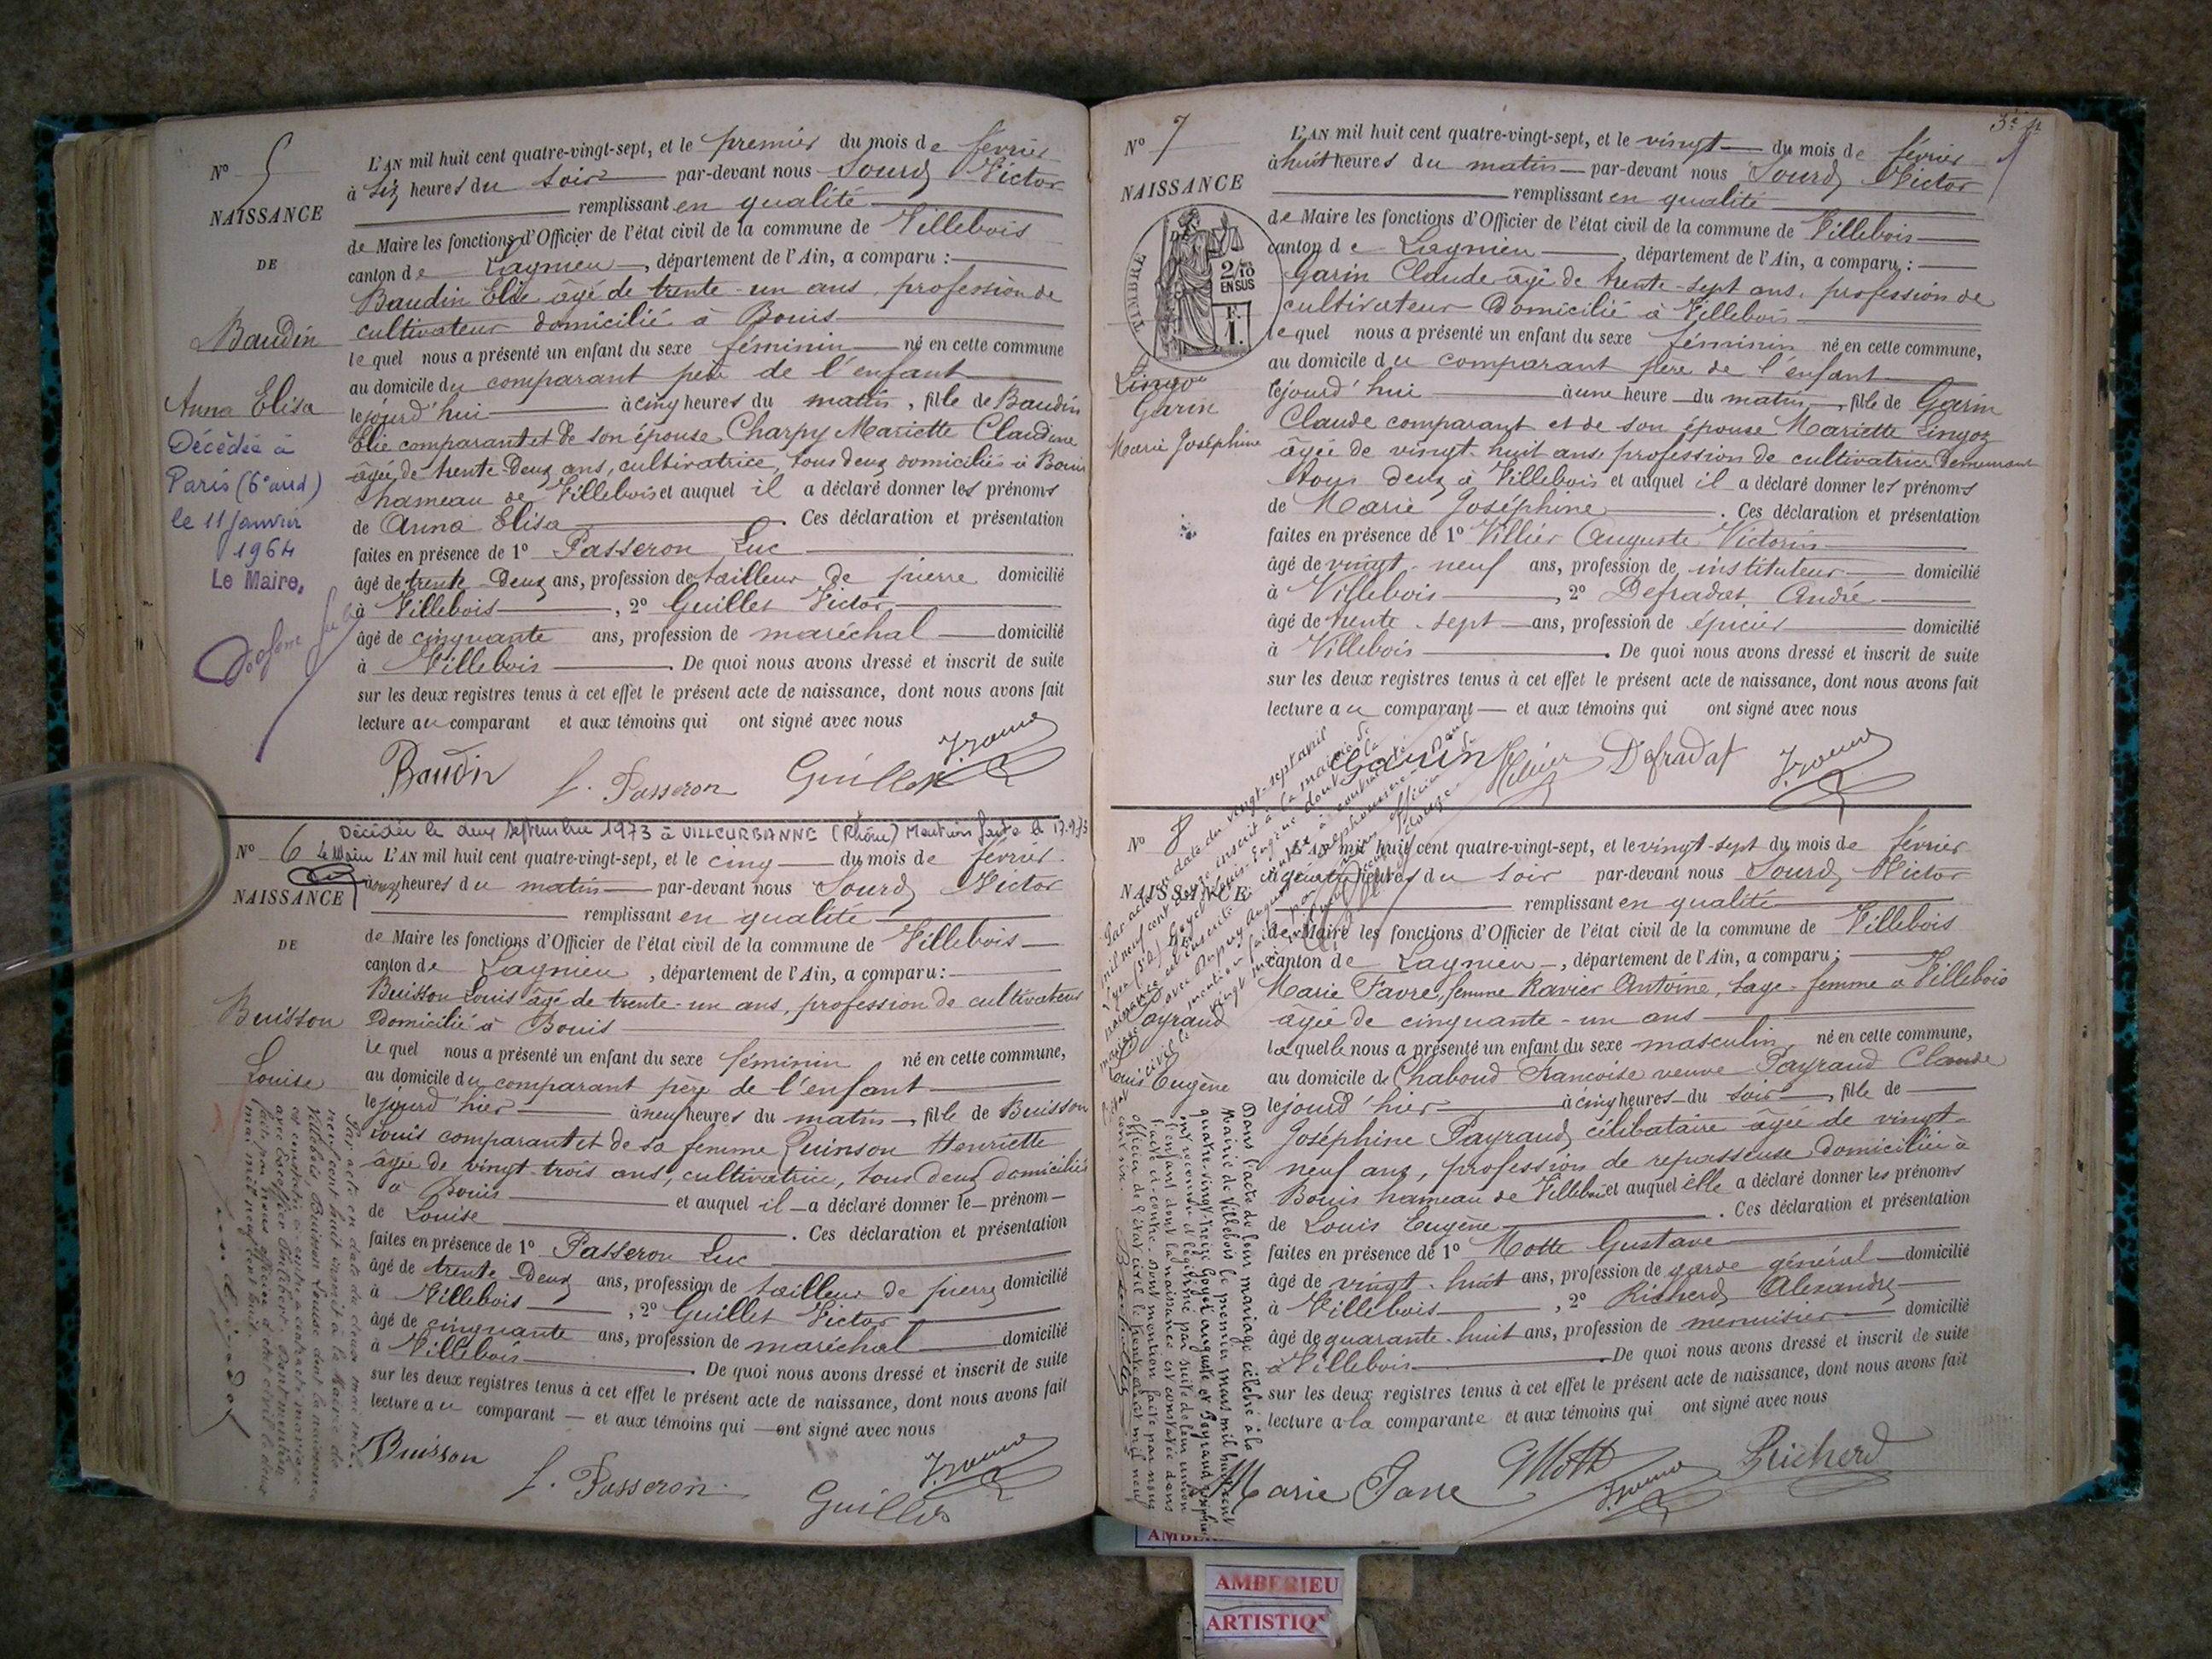 N° 5
NAISSANCE
DE
Baudin
Anna Elisa
Décédée à
Paris (6e arrd)
le 11 janvier
1964
Le Maire,
L'AN mil huit cent quatre-vingt-sept, et le premier du mois de février
à six heures du soir par-devant nous Sourd Victor
remplissant en qualité
de Maire les fonctions d'Officier de l'état civil de la commune de Villebois
canton de Lagnieu, département de l'Ain, a comparu :
Baudin Elie âgé de trente-un ans, profession de
cultivateur domicilié à Bouis
lequel nous a présenté un enfant du sexe féminin né en cette commune
au domicile du comparant père de l'enfant
lejourd'hui à cinq heures du matin, fille de Baudin
Elie comparant et de son épouse Charpy Mariette Claudine
âgée de trente-deux ans, cultivatrice, tous deux domiciliés à Bouis
hameau de Villebois et auquel il a déclaré donner les prénoms
de Anna Elisa. Ces déclaration et présentation
faites en présence de 1° Passeron Luc
âgé de trente-deux ans, profession de tailleur de pierre domicilié
à Villebois, 2° Guillet Victor
âgé de cinquante ans, profession de maréchal domicilié
à Villebois. De quoi nous avons dressé et inscrit de suite
sur les deux registres tenus à cet effet le présent acte de naissance, dont nous avons fait
lecture au comparant et aux témoins qui ont signé avec nous
Baudin L. Passeron Guillet
Décédée le deux septembre 1973 à VILLEURBANNE (Rhône) Mention faite le 17.9.73
Le Maire
N° 6
NAISSANCE
DE
Buisson
Louise
L'AN mil huit cent quatre-vingt-sept, et le cinq du mois de février
à onze heures du matin par-devant nous Sourd Victor
remplissant en qualité
de Maire les fonctions d'Officier de l'état civil de la commune de Villebois
canton de Lagnieu, département de l'Ain, a comparu :
Buisson Louis âgé de trente-un ans, profession de cultivateur
domicilié à Bouis
lequel nous a présenté un enfant du sexe féminin né en cette commune,
au domicile du comparant père de l'enfant
lejourd'hier à neuf heures du matin, fille de Buisson
Louis comparant et de sa femme Quinson Henriette
âgée de vingt-trois ans, cultivatrice, tous deux domiciliés
à Bouis et auquel il a déclaré donner le prénom
de Louise. Ces déclaration et présentation
faites en présence de 1° Passeron Luc
âgé de trente-deux ans, profession de tailleur de pierre domicilié
à Villebois, 2° Guillet Victor
âgé de cinquante ans, profession de maréchal domicilié
à Villebois. De quoi nous avons dressé et inscrit de suite
sur les deux registres tenus à cet effet le présent acte de naissance, dont nous avons fait
lecture au comparant et aux témoins qui ont signé avec nous
Buisson L. Passeron Guillet
N° 7
NAISSANCE
TIMBRE
2/10
EN SUS
F.
1.
Garin
Marie Joséphine
L'AN mil huit cent quatre-vingt-sept, et le vingt du mois de février
à huit heures du matin par-devant nous Sourd Victor
remplissant en qualité
de Maire les fonctions d'Officier de l'état civil de la commune de Villebois
canton de Lagnieu, département de l'Ain, a comparu :
Garin Claude âgé de trente-sept ans, profession de
cultivateur domicilié à Villebois
lequel nous a présenté un enfant du sexe féminin né en cette commune,
au domicile du comparant père de l'enfant
lejourd'hui à une heure du matin, fille de Garin
Claude comparant et de son épouse Mariette Lingoz
âgée de vingt-huit ans profession de cultivatrice demeurant
tous deux à Villebois et auquel il a déclaré donner les prénoms
de Marie Joséphine. Ces déclaration et présentation
faites en présence de 1° Villier Auguste Victorin
âgé de vingt-neuf ans, profession de instituteur domicilié
à Villebois, 2° Defradat André
âgé de trente-sept ans, profession de épicier domicilié
à Villebois. De quoi nous avons dressé et inscrit de suite
sur les deux registres tenus à cet effet le présent acte de naissance, dont nous avons fait
lecture au comparant et aux témoins qui ont signé avec nous
Garin Villier Defradat
N° 8
NAISSANCE
Payraud
Louis Eugène
L'AN mil huit cent quatre-vingt-sept, et le vingt-sept du mois de février
heures du soir par-devant nous Sourd Victor
remplissant en qualité
de Maire les fonctions d'Officier de l'état civil de la commune de Villebois
canton de Lagnieu, département de l'Ain, a comparu :
Marie Favre, femme Ravier Antoine, sage-femme à Villebois
âgée de cinquante-un ans
laquelle nous a présenté un enfant du sexe masculin né en cette commune,
au domicile de Chaboud Francoise veuve Payraud Claude
lejourd'hier à cinq heures du soir, fils de
Joséphine Payraud, célibataire âgée de vingt-
neuf ans, profession de repasseuse domiciliée à
Bouis hameau de Villebois et auquel elle a déclaré donner les prénoms
de Louis Eugène. Ces déclaration et présentation
faites en présence de 1° Motte Gustave
âgé de vingt-huit ans, profession de garde général domicilié
à Villebois, 2° Richerd Alexandre
âgé de quarante-huit ans, profession de menuisier domicilié
à Villebois. De quoi nous avons dressé et inscrit de suite
sur les deux registres tenus à cet effet le présent acte de naissance, dont nous avons fait
lecture à la comparante et aux témoins qui ont signé avec nous
Marie Favre Motte Richerd
Dans l'acte de leur mariage célébré à la
Mairie de Villebois le premier mars mil huit cent
quatre-vingt-treize Goyet Auguste et Peyraud Joséphine
ont reconnu et légitimé par suite de leur union
l'enfant dont la naissance est constatée dans
l'acte ci-contre. Dont mention faite par nous
AMBERIEU
ARTISTIQ